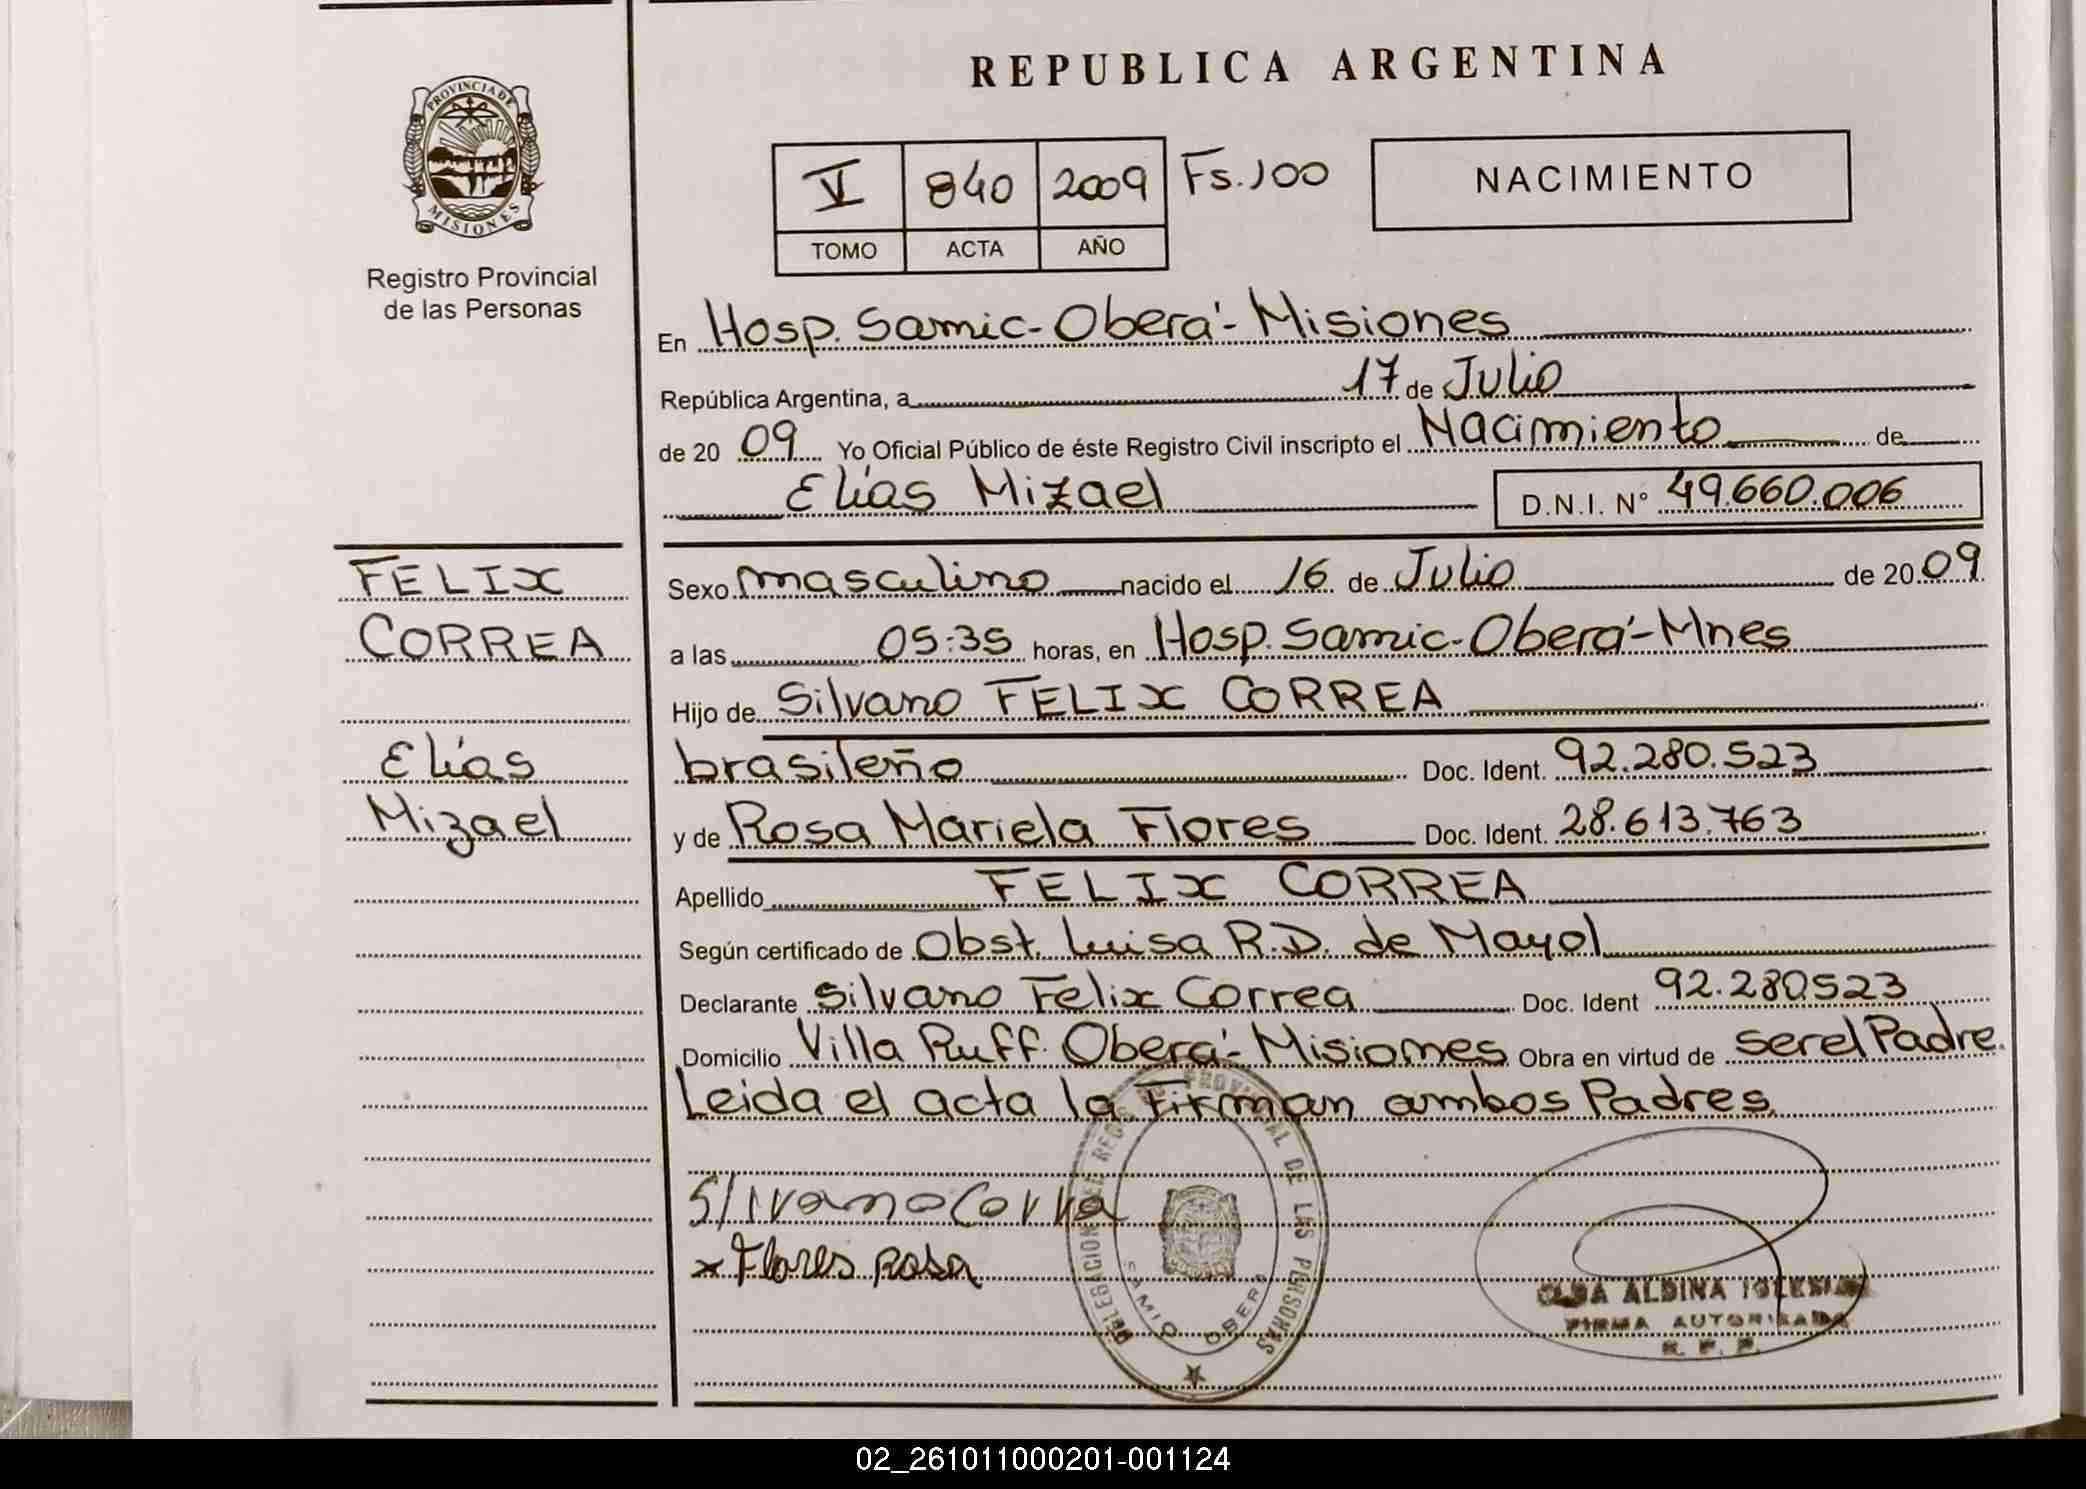 REPUBLICA ARGENTINA
PROVINCIA DE
MISIONES
Registro Provincial
de las Personas
V 840 2009 Fs. 100
TOMO ACTA AÑO
NACIMIENTO
En Hosp. Samic-Oberá-Misiones
República Argentina, a 17 de Julio
de 2009 Yo Oficial Público de éste Registro Civil inscripto el Nacimiento de
Elías Mizael D.N.I. Nº 49.660.006
FELIX
CORREA
Elías
Mizael
Sexo masculino nacido el 16 de Julio de 2009
a las 05:35 horas, en Hosp. Samic-Oberá-Mnes
Hijo de Silvano FELIX CORREA
brasileño Doc. Ident. 92.280.523
y de Rosa Mariela Flores Doc. Ident. 28.613.763
Apellido FELIX CORREA
Según certificado de Obst. Luisa R.D. de Mayol
Declarante Silvano Felix Correa Doc. Ident 92.280523
Domicilio Villa Ruff. Oberá-Misiones Obra en virtud de ser el Padre.
Leida el acta la Firman ambos Padres.
Silvano Correa
x Flores Rosa
DELEGACION REG PROVINCIAL DE LAS PERSONAS
OBERA
ALDINA
FIRMA AUTORIZADA
R. P. P.
02_261011000201-001124